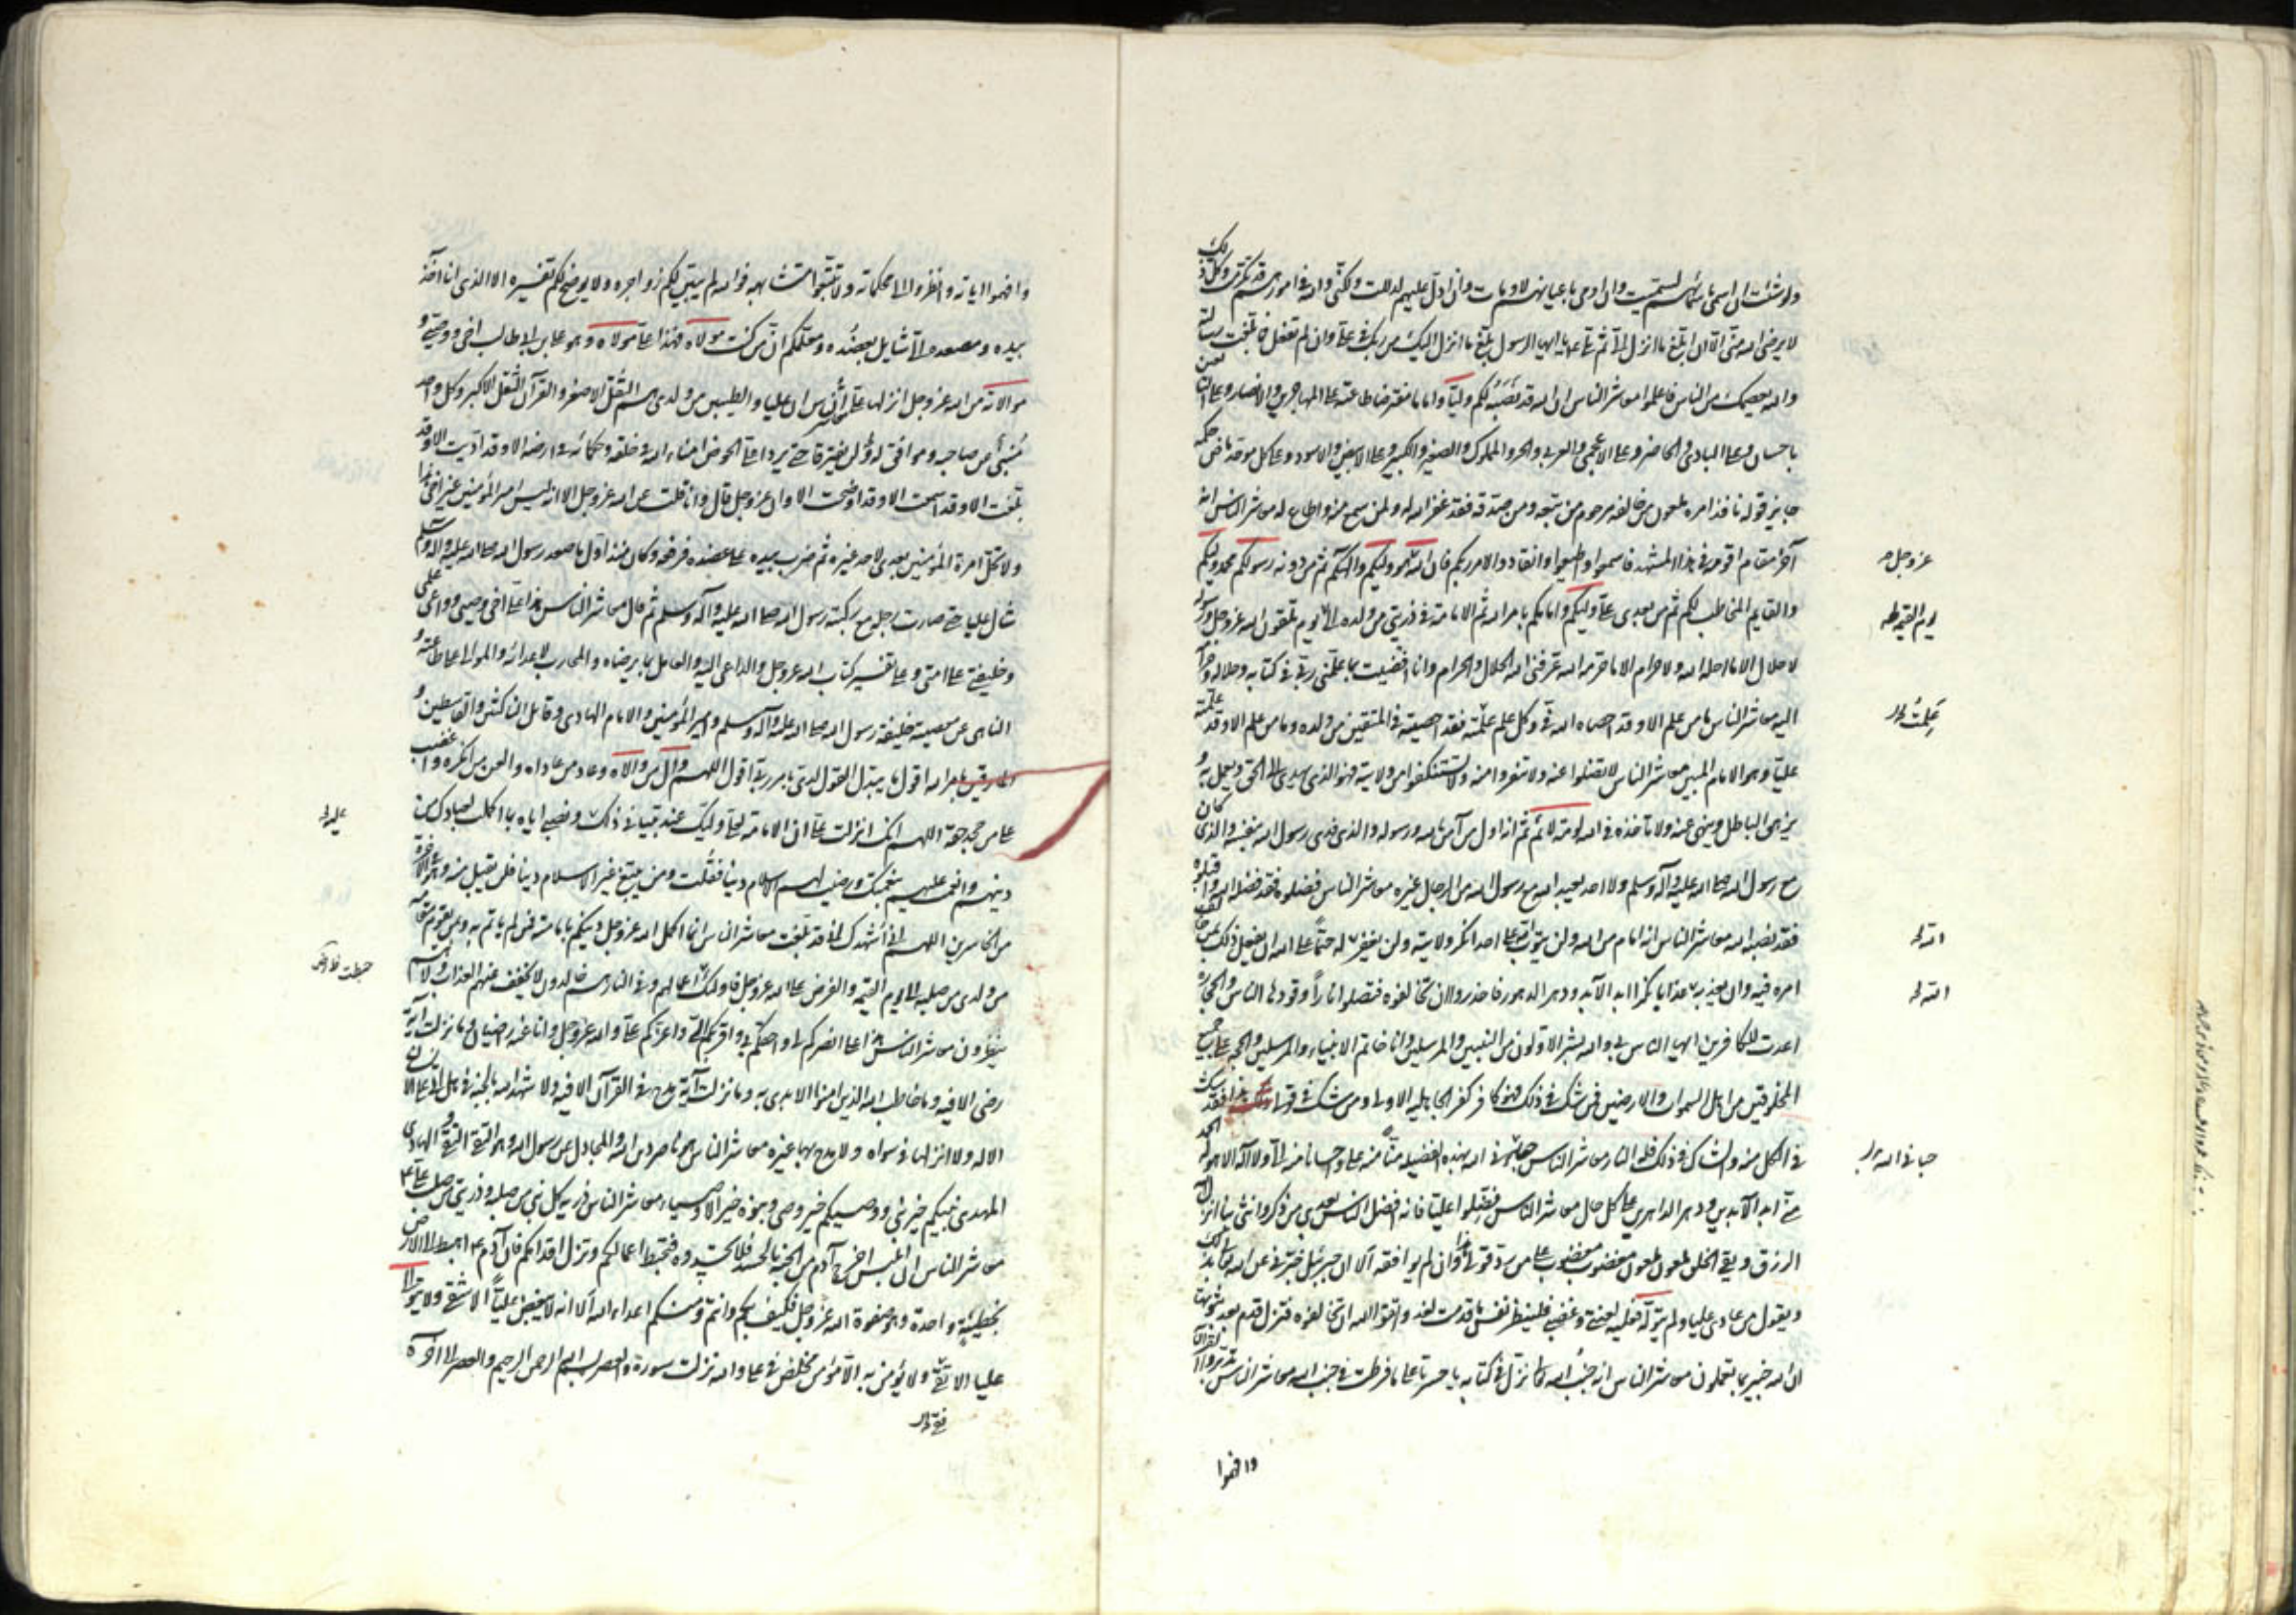 ولو شئت ان اسمى باسمائهم لسميت وان اومى باعيانهم لاومات وان ادل عليهم لدللت ولكنى والله فى امورهم قد تكرمت وكل ذلك
لا يرضى الله منى الا ان ابلغ ما انزل الى ثم تلا يا ايها الرسول بلغ ما انزل اليك من ربك فى على وان لم تفعل فما بلغت رسالته
والله يعصمك من الناس فاعلموا معاشر الناس ان الله قد نصبه لكم وليا واماما مفترضا طاعته على المهاجرين والانصار وعلى التابعين
باحسان وعلى البادى والحاضر وعلى الاعجمى والعربى والحر والمملوك والصغير والكبير وعلى الابيض والاسود وعلى كل موحد ماض حكمه
جايز قوله نافذ امره ملعون من خالفه مرحوم من تبعه ومن صدقه فقد غفر الله له ولمن سمع منه واطاع له معاشر الناس انه
آخر مقام اقومه فى هذا المشهد فاسمعوا واطيعوا وانقادوا لامر ربكم فان الله هو وليكم والهكم ثم من دونه رسولكم محمد وليكم
والقايم المخاطب لكم ثم من بعدى على وليكم وامامكم بامر الله ثم الامامة فى ذريتى من ولده الى يوم تلقون الله عز وجل ورسوله
لا حلال الا ما احله الله ولا حرام الا ما حرمه الله عرفنى الله الحلال والحرام وانا افضيت بما علمنى ربى فى كتابه وحلاله وحرامه
اليه معاشر الناس ما من علم الا وقد احصاه الله فى وكل علم علمته فقد احصيته فى المتقين من ولده وما من علم الا وقد علمته
عليا وهو الامام المبين معاشر الناس لا تضلوا عنه ولا تنفروا منه ولا تستنكفوا من ولايته فهو الذى يهدى الى الحق ويعمل به و
يزهق الباطل وينهى عنه ولا تاخذه فى الله لومة لائم ثم انه اول من آمن بالله ورسوله والذى فدى رسول الله بنفسه والذى كان
مع رسول الله صلى الله عليه وآله وسلم ولا احد يعبد الله مع رسول الله من الرجال غيره معاشر الناس فضلوه فقد فضله الله واقبلوه
فقد نصبه الله معاشر الناس انه امام من الله ولن يتوب الله على احد انكر ولايته ولن يغفر له حتما على الله ان يفعل ذلك بمن خالف
امره فيه وان يعذبه عذابا نكرا ابد الآباد ودهر الدهور فاحذروا ان تخالفوه فتصلوا نارا وقودها الناس والحجارة
اعدت للكافرين ايها الناس بى والله بشر الاولون من النبيين والمرسلين وانا خاتم الانبياء والمرسلين والحجة على جميع
المخلوقين من اهل السموات والارضين فمن شك فى ذلك فهو كافر كفر الجاهلية الاولى ومن شك فى قولى هذا فقد شك
فى الكل منه والشاك فى ذلك فله النار معاشر الناس حبانى الله بهذه الفضيلة منا منه على واحسانا منه الى ولا اله الا هو له الحمد
منى ابد الآبدين ودهر الداهرين على كل حال معاشر الناس فضلوا عليا فانه افضل الناس بعدى من ذكر وانثى بنا انزل
الرزق وبقى الخلق ملعون ملعون مغضوب مغضوب على من رد قولى هذا وان لم يوافقه الا ان جبرئيل خبرنى عن الله تعالى بذلك
ويقول من عادى عليا ولم يتوله فعليه لعنتى وغضبى فلينظر نفس ما قدمت لغد واتقوا الله ان تخالفوه فتزل قدم بعد ثبوتها
ان الله خبير بما تعملون معاشر الناس انه جنب الله الذى نزل فى كتابه يا حسرتا على ما فرطت فى جنب الله معاشر الناس تدبروا القرآن
وافهموا
عز وجل
يوم القيمة
علمت
الله
الله
حبانى الله
وافهموا اياته وانظروا الى محكماته ولا تتبعوا متشابهه فوالله لم يبين لكم زواجره ولا يوضح لكم تفسيره الا الذى انا آخذ
بيده ومصعده الى شايل بعضده ومعلمكم ان من كنت مولاه فهذا على مولاه وهو على بن ابى طالب اخى ووصيى و
موالاته من الله عز وجل انزلها على معاشر الناس ان عليا والطيبين من ولدى هم الثقل الاصغر والقرآن الثقل الاكبر وكل واحد
منبئ من صاحبه وموافق له ولن يفترقا حتى يردا على الحوض امناء الله فى خلقه وحكامه فى ارضه الا وقد اديت الا وقد
بلغت الا وقد اسمعت الا وقد اوضحت الا وان عز وجل قال وانا قلت عن الله عز وجل الا انه ليس امير المؤمنين غير اخى هذا
ولا تحل امرة المؤمنين بعدى لاحد غيره ثم ضرب بيده على عضده فرفعه وكان منذ اول ما صعد رسول الله صلى الله عليه وآله وسلم
شال عليا حتى صارت رجله مع ركبة رسول الله صلى الله عليه وآله وسلم ثم قال معاشر الناس هذا على اخى ووصيى وواعى علمى
وخليفتى على امتى وعلى تفسير كتاب الله عز وجل والداعى اليه والعامل بما يرضاه والمحارب لاعدائه والموالى على طاعته و
الناهى عن معصيته خليفة رسول الله صلى الله عليه وآله وسلم وامير المؤمنين والامام الهادى وقاتل الناكثين والقاسطين و
المارقين بامر الله اقول ما يبدل القول لدى بامر ربى اقول اللهم وال من والاه وعاد من عاداه والعن من انكره واغضب
على من جحد حقه اللهم انك انزلت على ان الامامة لعلى وليك عند تبيانى ذلك ونصبى اياه بما اكملت لعبادك من
دينهم واتممت عليهم بنعمتك ورضيت لهم الاسلام دينا فقلت ومن يبتغ غير الاسلام دينا فلن يقبل منه وهو فى الاخرة
من الخاسرين اللهم انى اشهدك انى قد بلغت معاشر الناس انما اكمل الله عز وجل دينكم بامامته فمن لم ياتم به وبمن يقوم مقامه
من ولدى من صلبه الى يوم القيمة والعرض على الله عز وجل فاولئك اعمالهم وفى النار هم خالدون لا يخفف عنهم العذاب ولا هم
ينظرون معاشر الناس هذا على انصركم لى واحقكم بى واقربكم الى واعزكم على والله عز وجل وانا عنه راضيان وما نزلت آية
رضى الا فيه وما خاطب الله الذين امنوا الا بدئ به وما نزلت آية مدح فى القرآن الا فيه ولا شهد الله بالجنة فى هل اتى على الانسان
الا له ولا انزلها فى سواه ولا مدح بها غيره معاشر الناس هو ناصر دين الله والمجادل عن رسول الله وهو التقى النقى الهادى
المهدى نبيكم خير نبى ووصيكم خير وصى وبنوه خير الاوصياء معاشر الناس ذرية كل نبى من صلبه وذريتى من صلب على
معاشر الناس ان ابليس اخرج آدم من الجنة بالحسد فلا تحسدوه فتحبط اعمالكم وتزل اقدامكم فان آدم اهبط الى الارض
بخطيئة واحدة وهو صفوة الله عز وجل فكيف بكم وانتم انتم ومنكم اعداء الله الا انه لا يبغض عليا الا شقى ولا يوالى
عليا الا تقى ولا يؤمن به الا مؤمن مخلص فى على والله نزلت سورة والعصر بسم الله الرحمن الرحيم والعصر الى آخره
عليه
حبطت